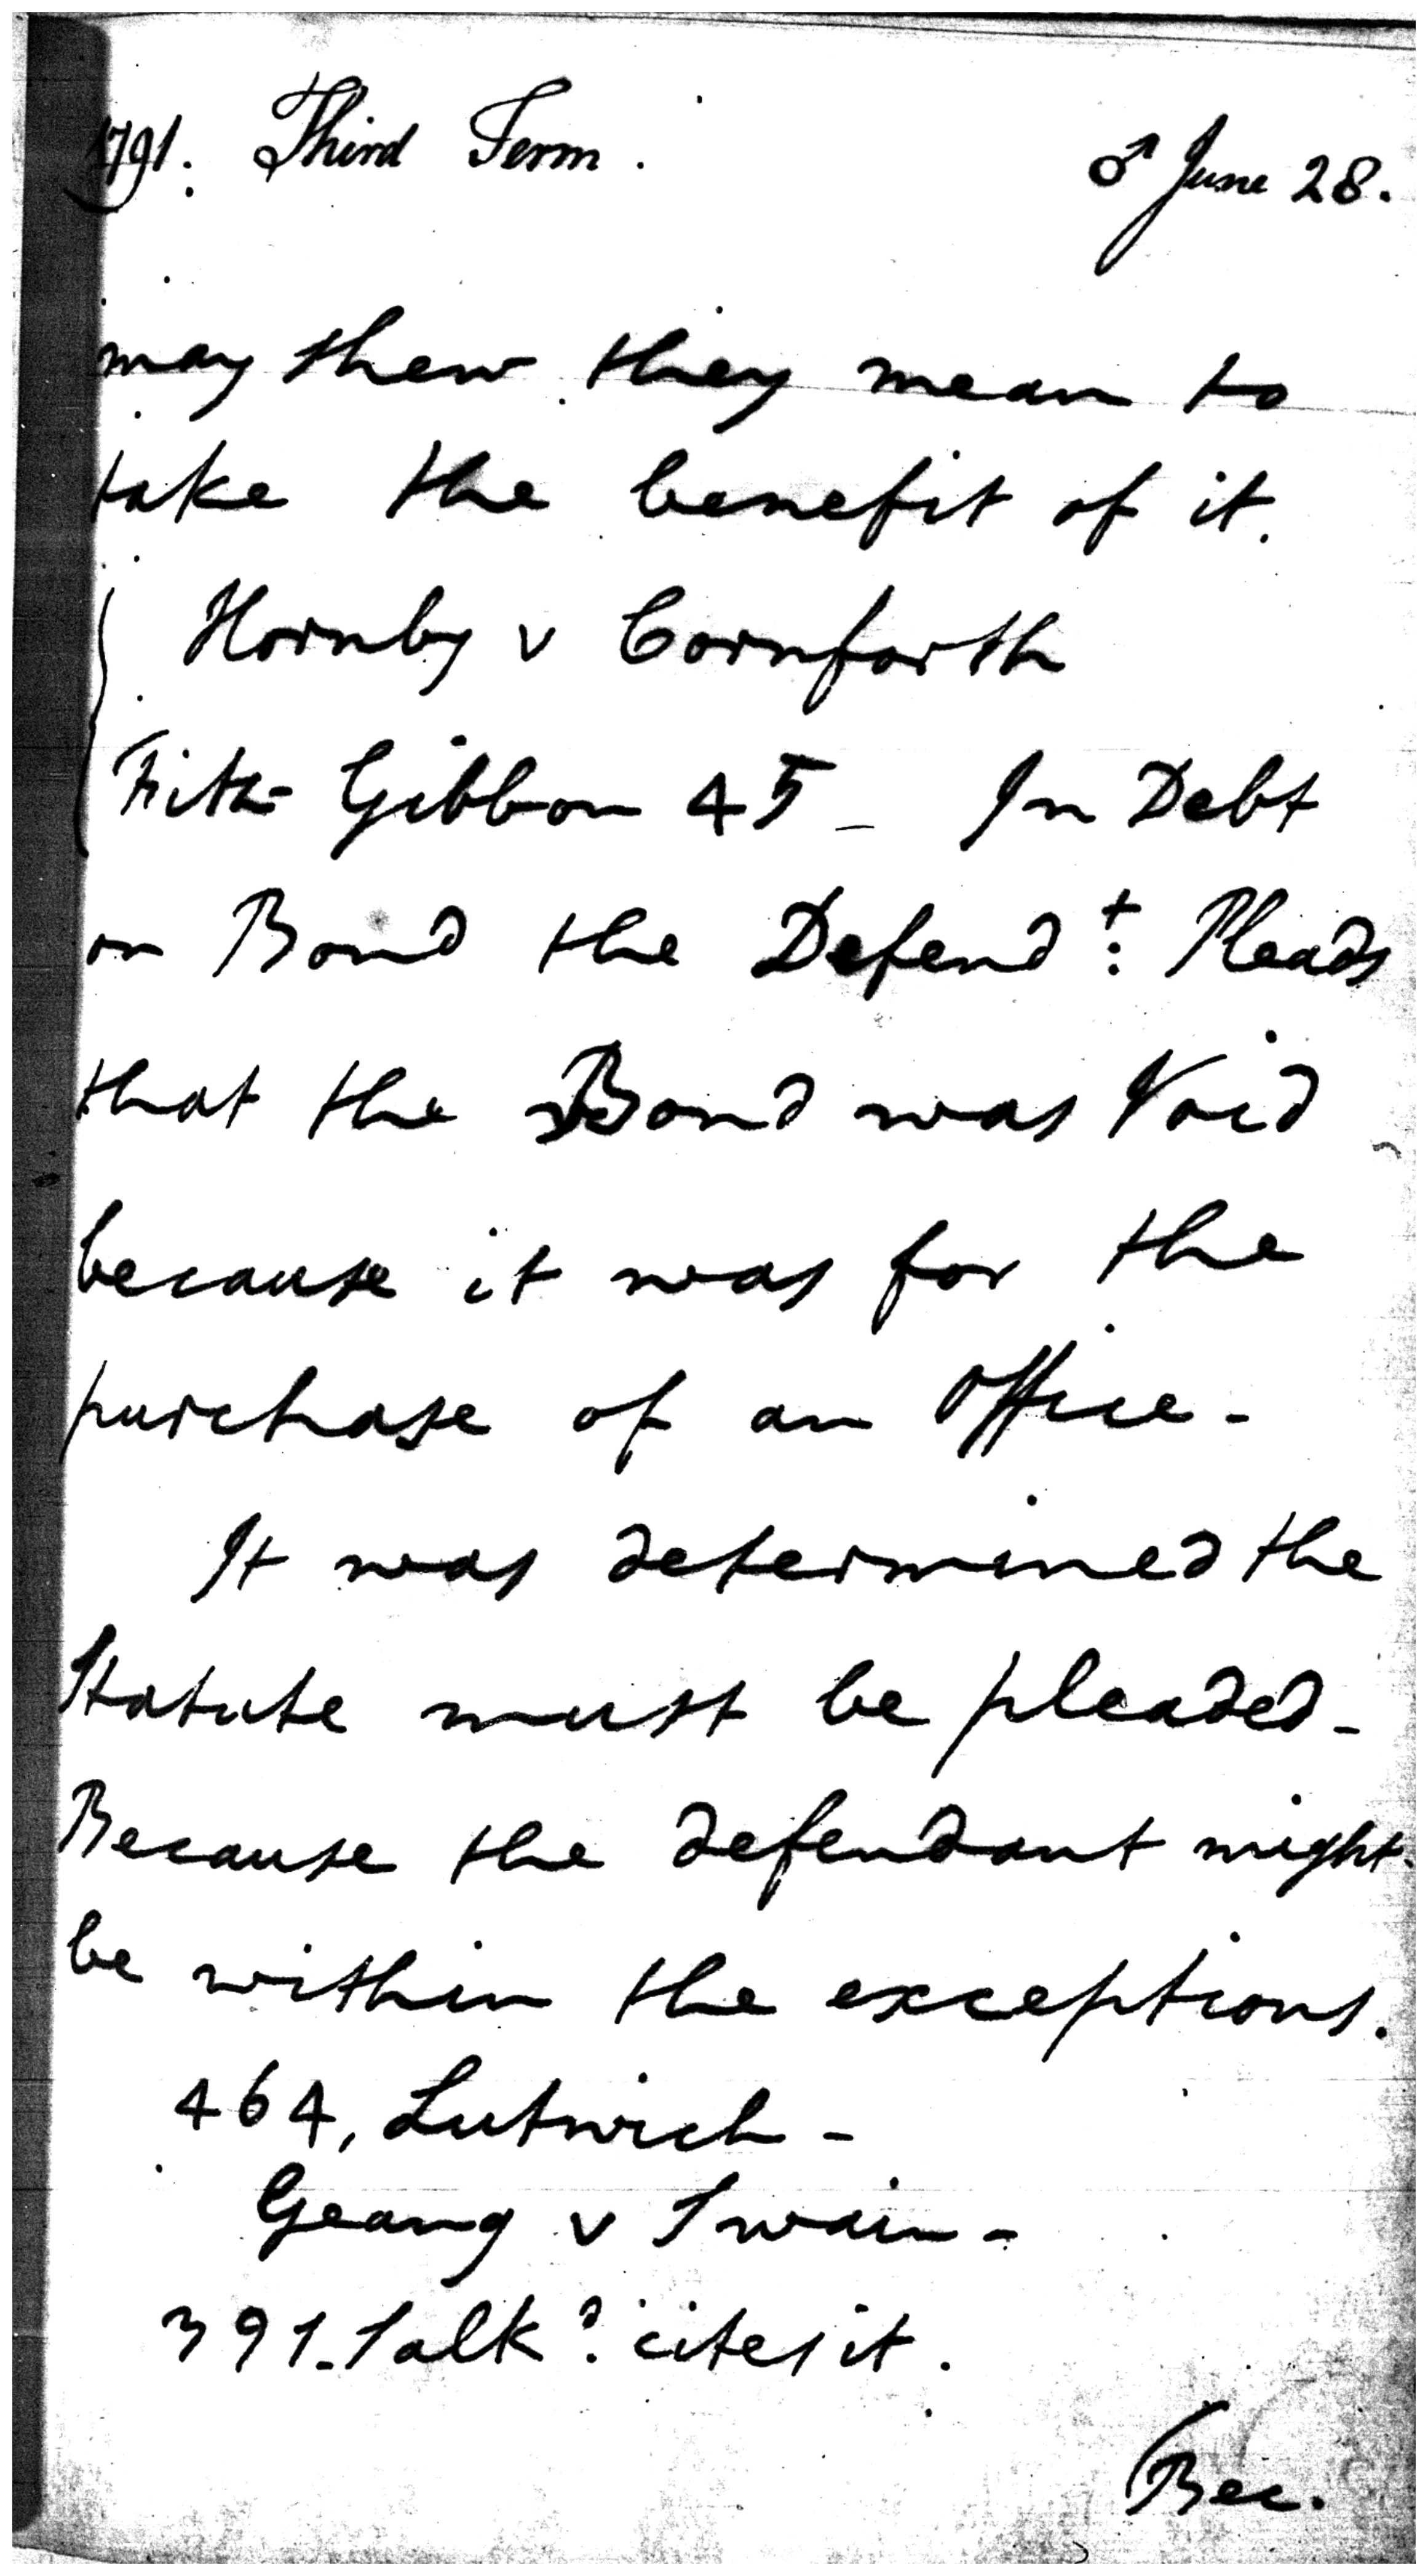 1791. Third Term.
♂ June 28.
may shew they mean to
take the benefit of it.
Hornby v Cornforth
Fitz-Gibbon 45 - In Debt
on Bond the Defend:t Pleads
that the Bond was Void
because it was for the
purchase of an Office -
It was determined the
Statute must be pleaded -
Because the defendant might
be within the exceptions.
464, Lutwich -
Geang v Swain -
391. Salk:d cites it.
Bec.